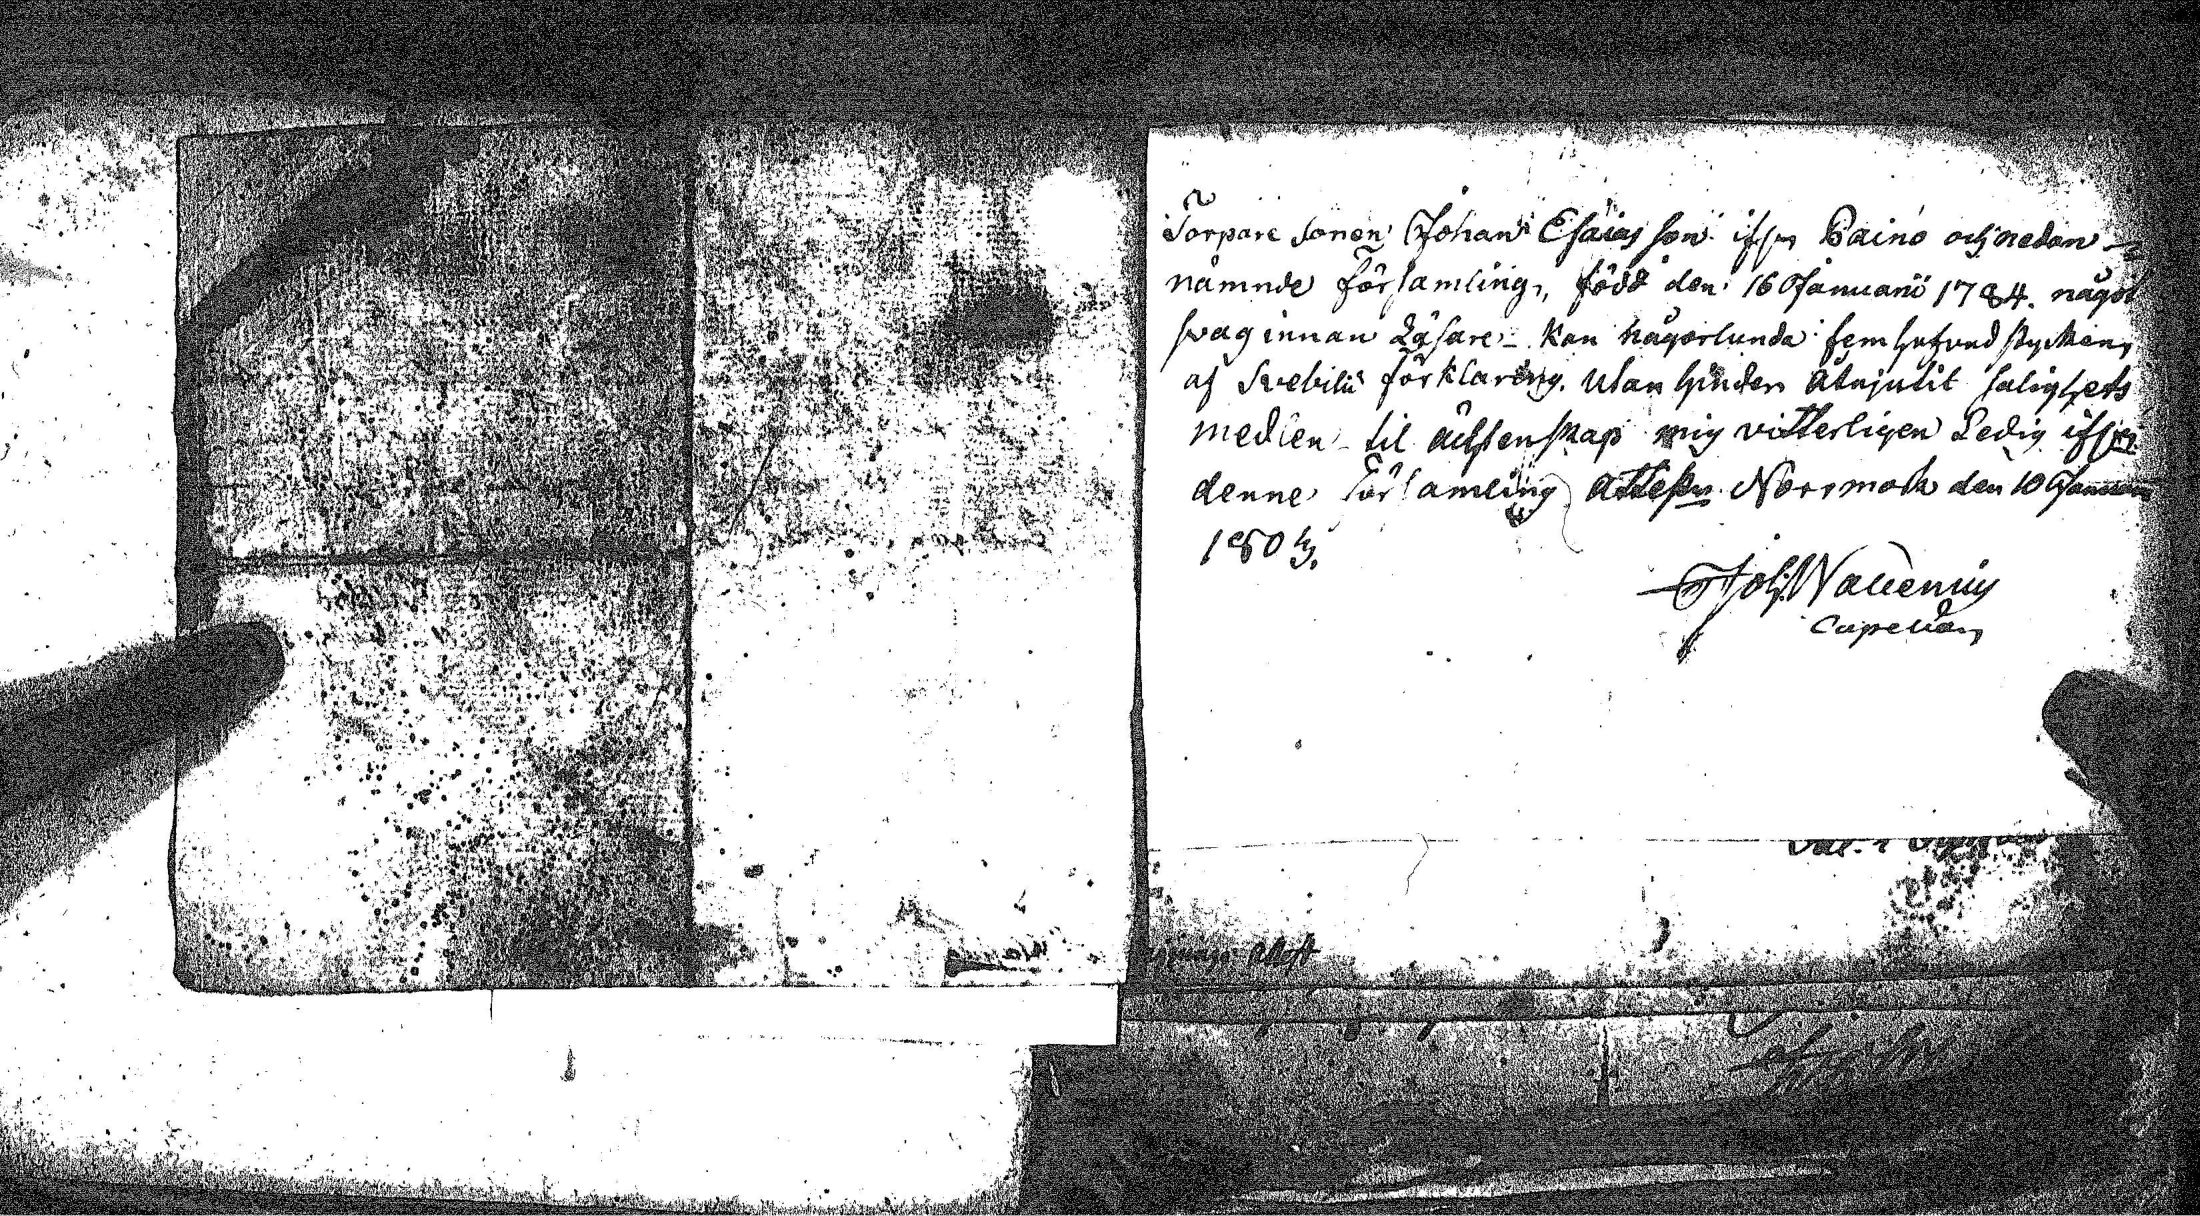 Torpare sonen Johan Esaias son ifrån Painó och nedan-
nämnde församling, född den 16 Januarii 1784. något
svag innan Läsare - kan någorlunda fem hufvud styckens
af Svebilii förklaring. Utan hinder åtnjutit salighets
medlen - til äcktenskap mig vitterligen Ledig ifrån
denne församling attest. Norrmark den 10 Januarii
180
Joh: Wallenius
Capellan